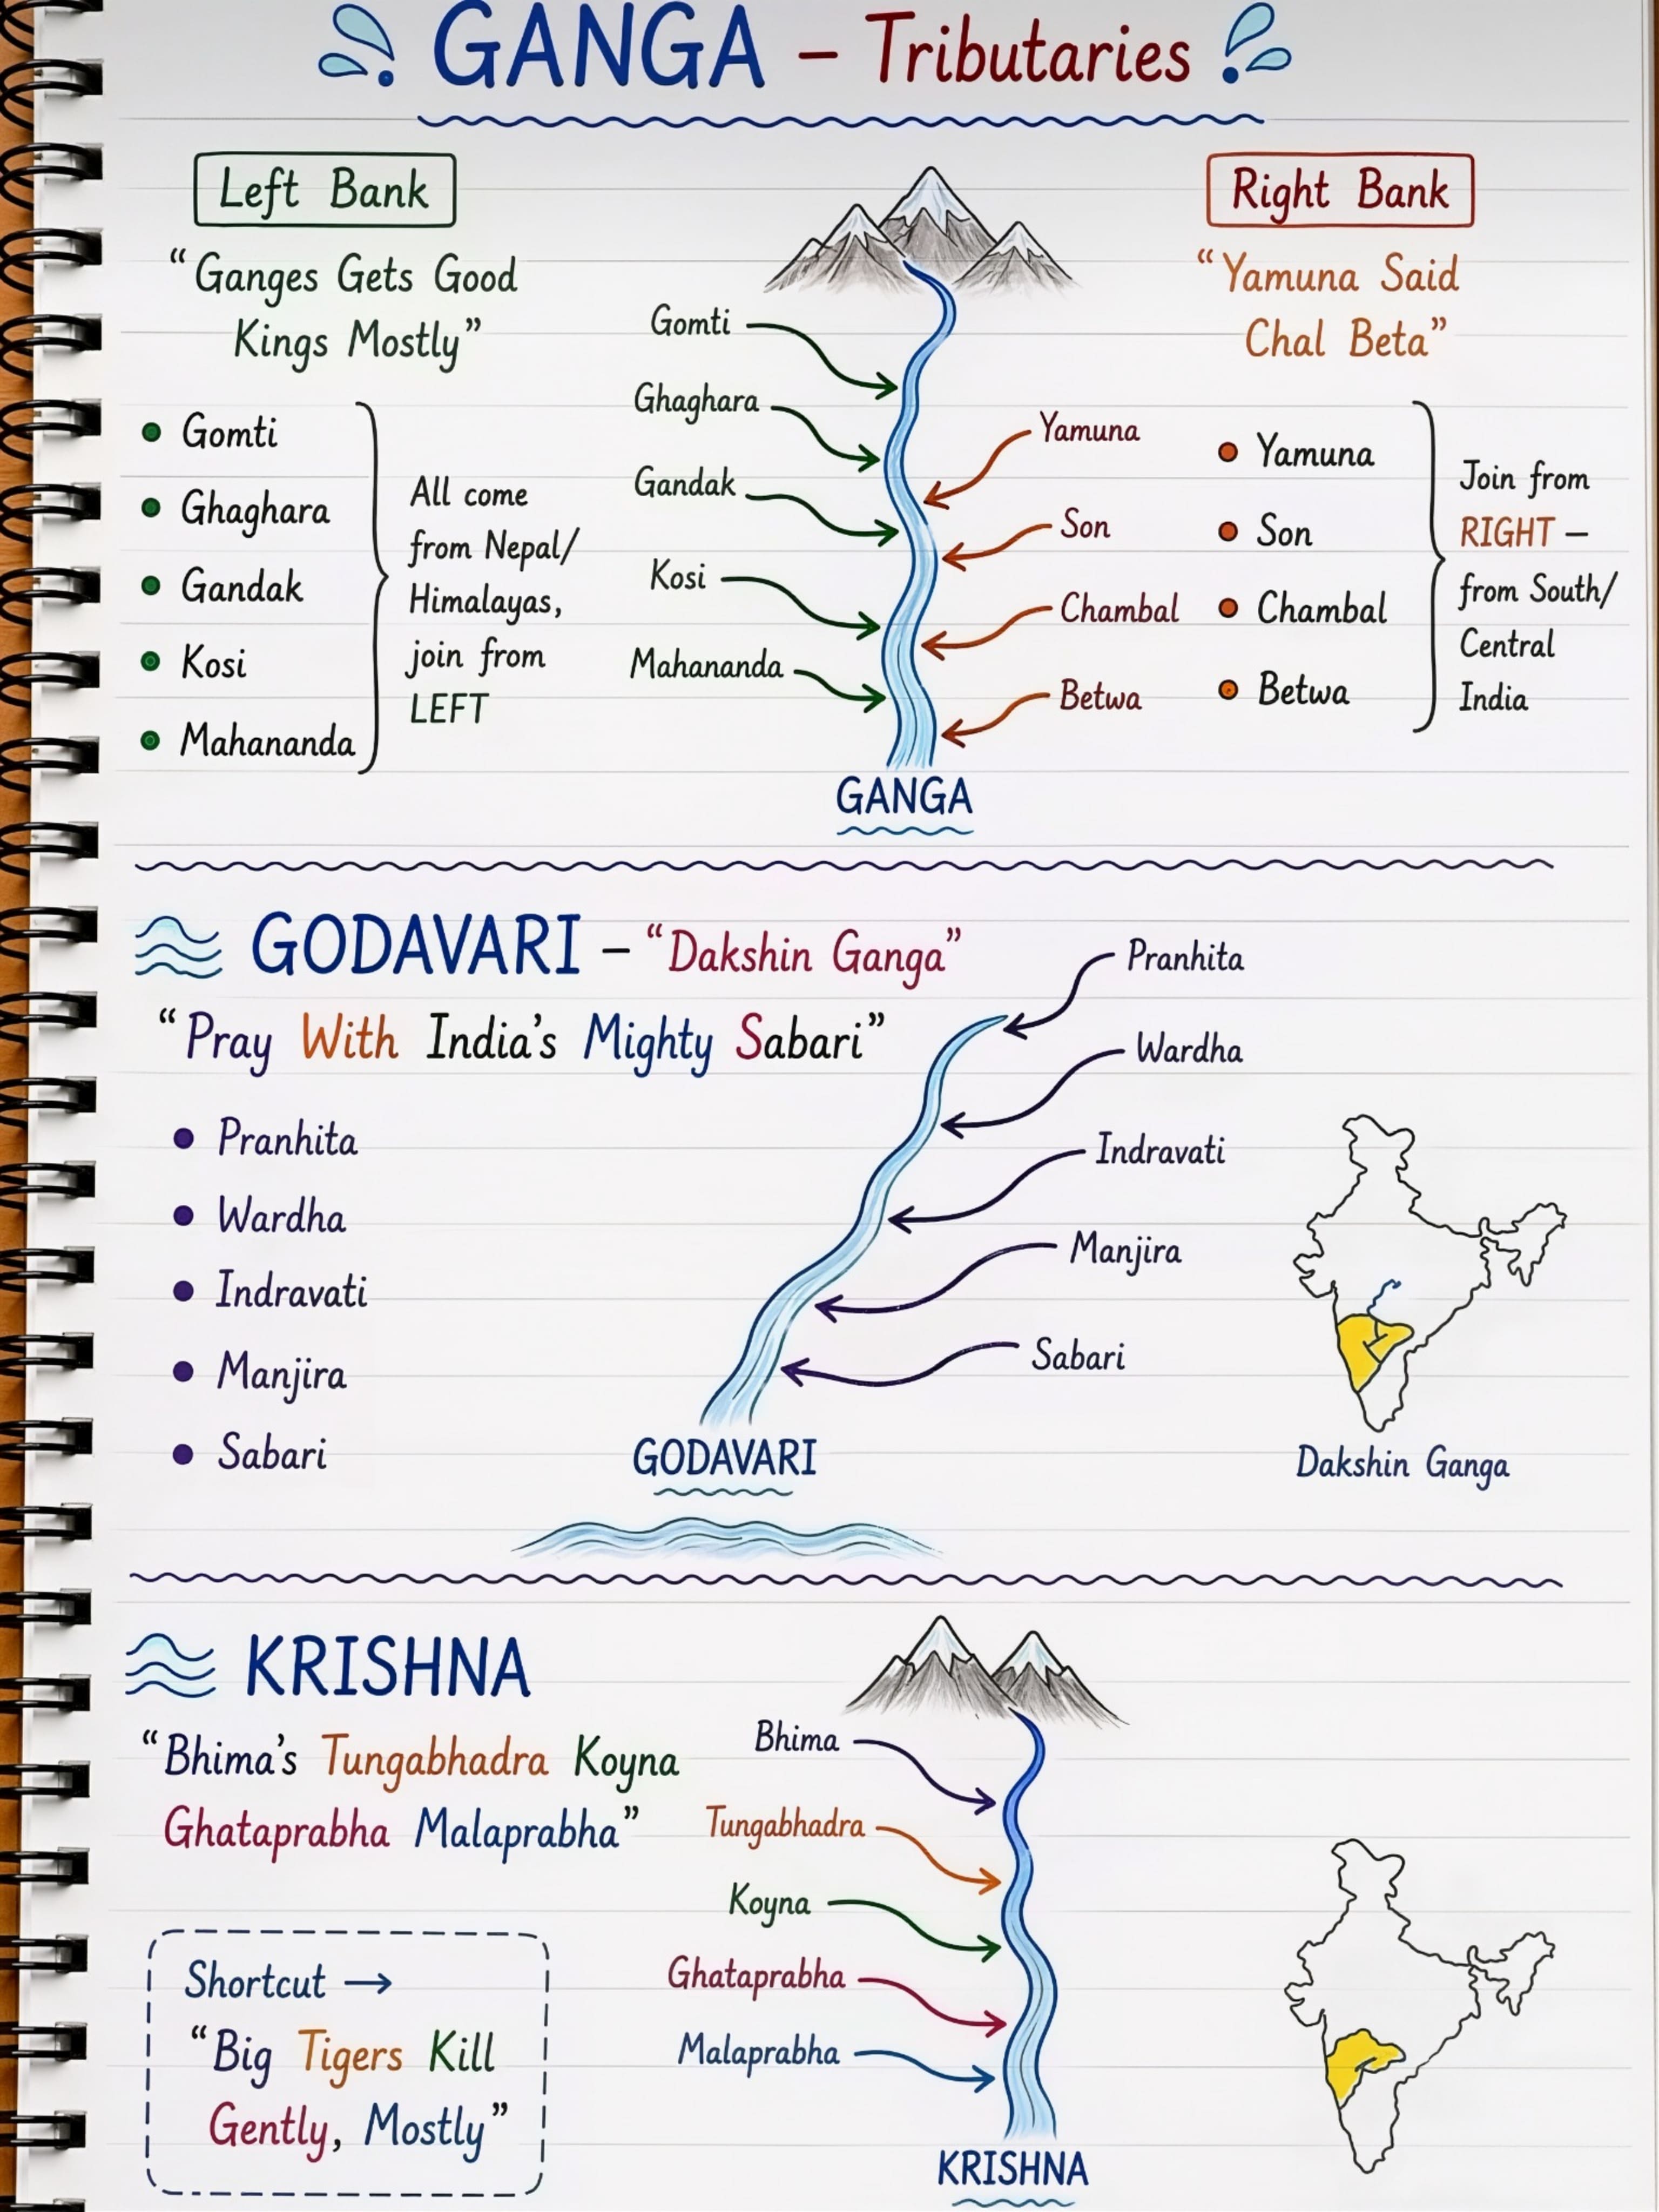 GANGA – Tributaries
Left Bank
"Ganges Gets Good
Kings Mostly"
• Gomti
• Ghaghara
• Gandak
• Kosi
• Mahananda
All come
from Nepal/
Himalayas,
join from
LEFT
Gomti
Ghaghara
Gandak
Kosi
Mahananda
Yamuna
Son
Chambal
Betwa
GANGA
Right Bank
"Yamuna Said
Chal Beta"
• Yamuna
• Son
• Chambal
• Betwa
Join from
RIGHT –
from South/
Central
India
GODAVARI – "Dakshin Ganga"
"Pray With India's Mighty Sabari"
• Pranhita
• Wardha
• Indravati
• Manjira
• Sabari
Pranhita
Wardha
Indravati
Manjira
Sabari
GODAVARI
Dakshin Ganga
KRISHNA
"Bhima's Tungabhadra Koyna
Ghataprabha Malaprabha"
Shortcut →
"Big Tigers Kill
Gently, Mostly"
Bhima
Tungabhadra
Koyna
Ghataprabha
Malaprabha
KRISHNA